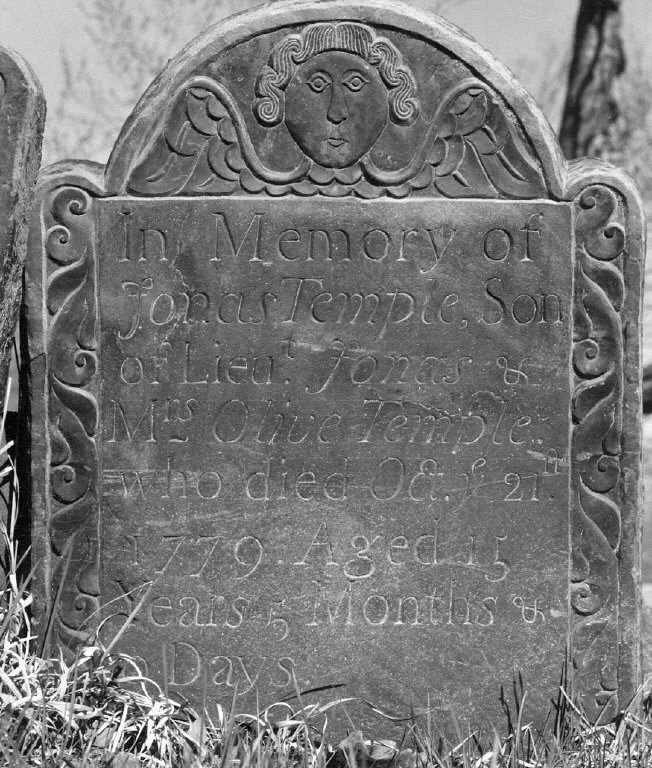 In Memory of
Jonas Temple, Son
of Lieu.t Jonas &
Mrs Olive Temple.
who died Oct. ye 21st.
1779. Aged 15
Years 5 Months &
Days